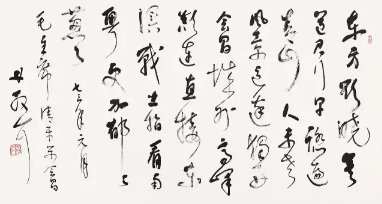 东方欲晓莫
道君行早踏遍
青山人未老
风景这边独好
会昌城外高峰
颠连直接东
溟战士指看南
粤更加郁々
葱々
七三年元月
毛主席清平乐会昌